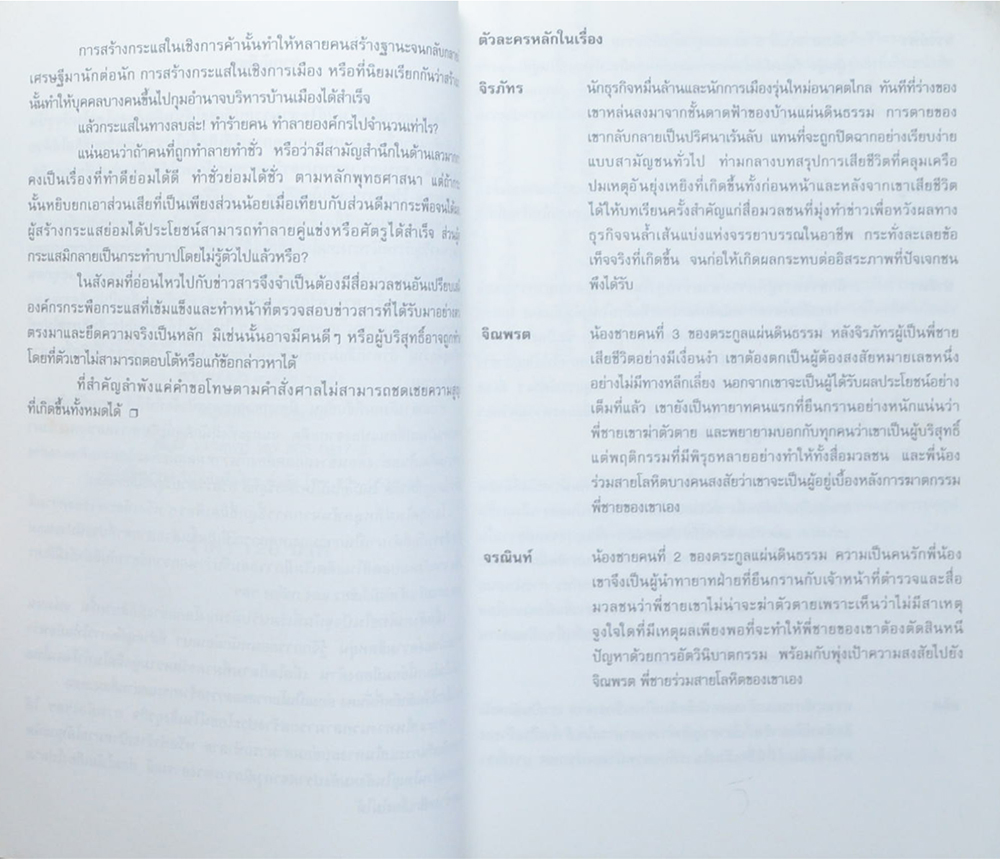 การสร้างกระแสในเชิงการค้านั้นทำให้หลายคนสร้างฐานะจนกลับกลาย
เศรษฐีมานักต่อนัก การสร้างกระแสในเชิงการเมือง หรือที่นิยมเรียกกันว่าสร้าง
นั้นทำให้บุคคลบางคนขึ้นไปกุมอำนาจบริหารบ้านเมืองได้สำเร็จ
แล้วกระแสในทางลบล่ะ! ทำร้ายคน ทำลายองค์กรไปจำนวนเท่าไร?
แน่นอนว่าถ้าคนที่ถูกทำลายทำชั่ว หรือว่ามีสามัญสำนึกในด้านเลวมาก
คงเป็นเรื่องที่ทำดีย่อมได้ดี ทำชั่วย่อมได้ชั่ว ตามหลักพุทธศาสนา แต่ถ้า
นั้นหยิบยกเอาส่วนเสียที่เป็นเพียงส่วนน้อยเมื่อเทียบกับส่วนดีมากระพือจน
ผู้สร้างกระแสย่อมได้ประโยชน์สามารถทำลายคู่แข่งหรือศัตรูได้สำเร็จ ส่วน
กระแสมิกลายเป็นกระทำบาปโดยไม่รู้ตัวไปแล้วหรือ?
ในสังคมที่อ่อนไหวไปกับข่าวสารจึงจำเป็นต้องมีสื่อมวลชนอันเปรียบ
องค์กรกระพือกระแสที่เข้มแข็งและทำหน้าที่ตรวจสอบข่าวสารที่ได้รับมาอย่าง
ตรงมาและยึดความจริงเป็นหลัก มิเช่นนั้นอาจมีคนดีๆ หรือผู้บริสุทธิ์อาจถูก
โดยที่ตัวเขาไม่สามารถตอบโต้หรือแก้ข้อกล่าวหาได้
ที่สำคัญลำพังแค่คำขอโทษตามคำสั่งศาลไม่สามารถชดเชยความ
ที่เกิดขึ้นทั้งหมดได้ ❒
ตัวละครหลักในเรื่อง
จิรภัทร นักธุรกิจหมื่นล้านและนักการเมืองรุ่นใหม่อนาคตไกล ทันทีที่ร่างของ
เขาหล่นลงมาจากชั้นดาดฟ้าของบ้านแผ่นดินธรรม การตายของ
เขากลับกลายเป็นปริศนาเร้นลับ แทนที่จะถูกปิดฉากอย่างเรียบง่าย
แบบสามัญชนทั่วไป ท่ามกลางบทสรุปการเสียชีวิตที่คลุมเครือ
ปมเหตุอันยุ่งเหยิงที่เกิดขึ้นทั้งก่อนหน้าและหลังจากเขาเสียชีวิต
ได้ให้บทเรียนครั้งสำคัญแก่สื่อมวลชนที่มุ่งทำข่าวเพื่อหวังผลทาง
ธุรกิจจนล้ำเส้นแบ่งแห่งจรรยาบรรณในอาชีพ กระทั่งละเลยข้อ
เท็จจริงที่เกิดขึ้น จนก่อให้เกิดผลกระทบต่ออิสระภาพที่ปัจเจกชน
พึงได้รับ
จิณพรต น้องชายคนที่ 3 ของตระกูลแผ่นดินธรรม หลังจิรภัทรผู้เป็นพี่ชาย
เสียชีวิตอย่างมีเงื่อนงำ เขาต้องตกเป็นผู้ต้องสงสัยหมายเลขหนึ่ง
อย่างไม่มีทางหลีกเลี่ยง นอกจากเขาจะเป็นผู้ได้รับผลประโยชน์อย่าง
เต็มที่แล้ว เขายังเป็นทายาทคนแรกที่ยืนกรานอย่างหนักแน่นว่า
พี่ชายเขาฆ่าตัวตาย และพยายามบอกกับทุกคนว่าเขาเป็นผู้บริสุทธิ์
แต่พฤติกรรมที่มีพิรุธหลายอย่างทำให้ทั้งสื่อมวลชน และพี่น้อง
ร่วมสายโลหิตบางคนสงสัยว่าเขาจะเป็นผู้อยู่เบื้องหลังการฆาตกรรม
พี่ชายของเขาเอง
จรณินท์ น้องชายคนที่ 2 ของตระกูลแผ่นดินธรรม ความเป็นคนรักพี่น้อง
เขาจึงเป็นผู้นำทายาทฝ่ายที่ยืนกรานกับเจ้าหน้าที่ตำรวจและสื่อ
มวลชนว่าพี่ชายเขาไม่น่าจะฆ่าตัวตายเพราะเห็นว่าไม่มีสาเหตุ
จูงใจใดที่มีเหตุผลเพียงพอที่จะทำให้พี่ชายของเขาต้องตัดสินหนี
ปัญหาด้วยการอัตวินิบาตกรรม พร้อมกับพุ่งเป้าความสงสัยไปยัง
จิณพรต พี่ชายร่วมสายโลหิตของเขาเอง